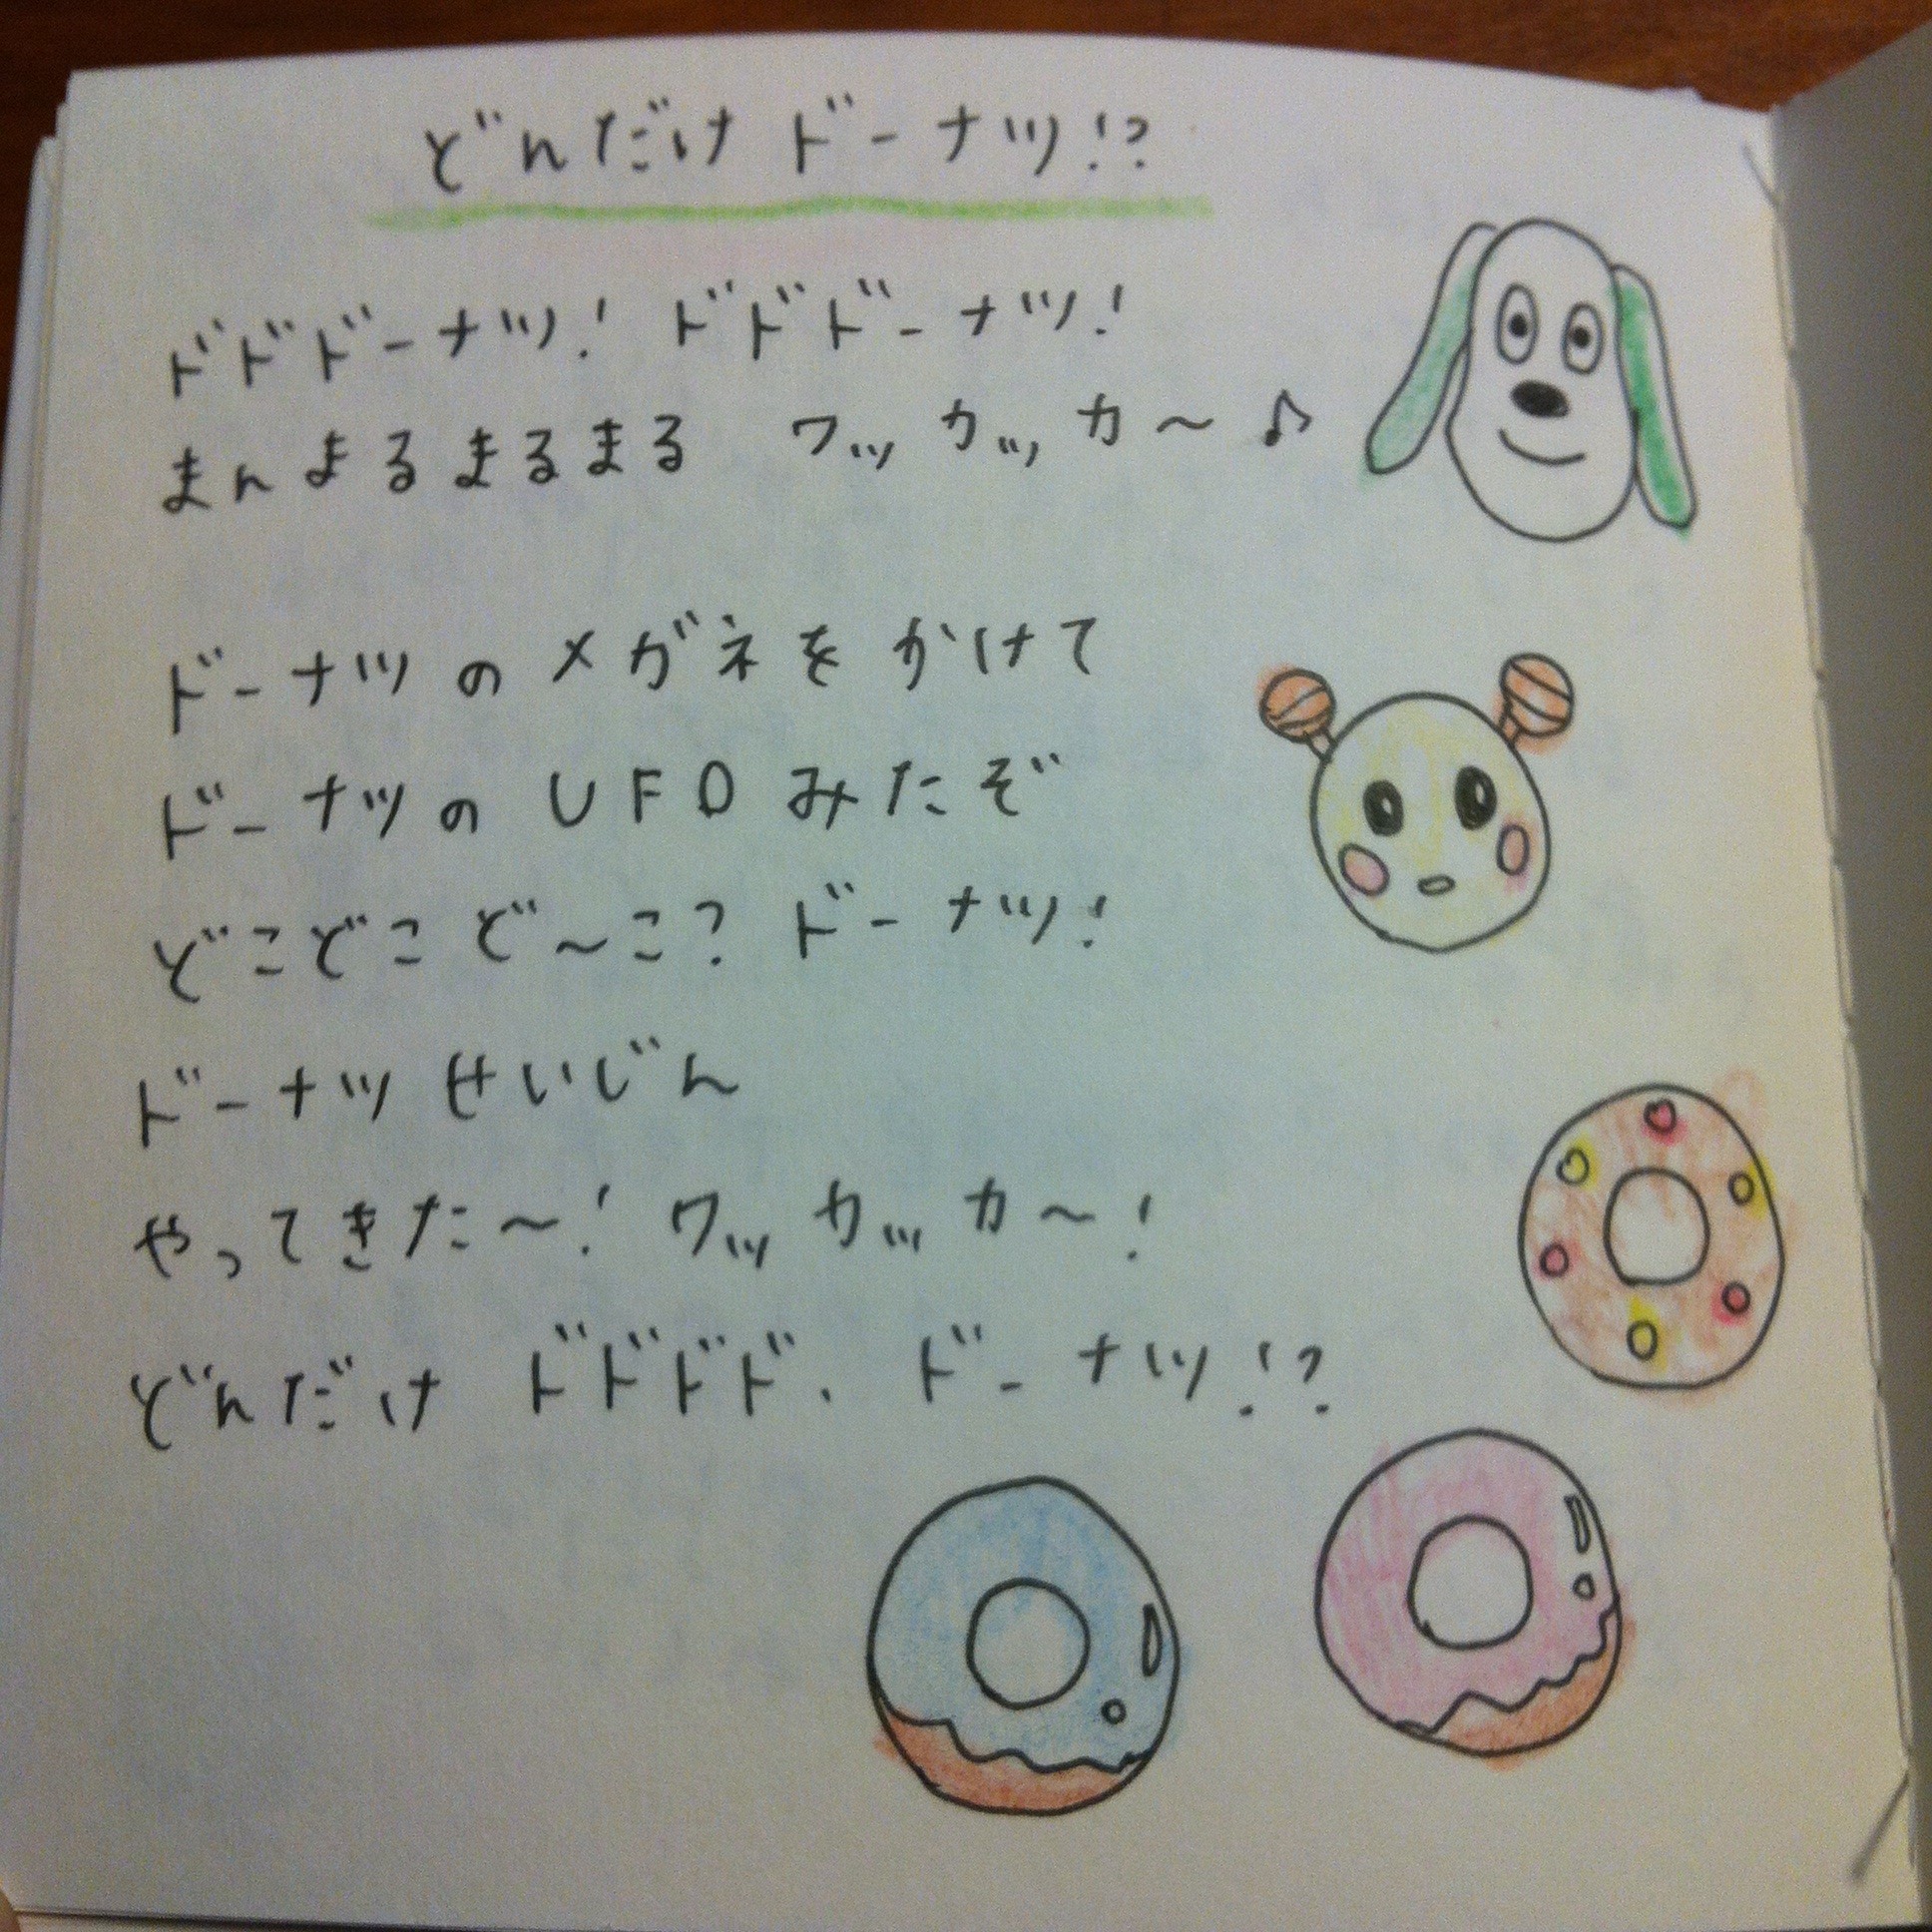 どんだけ ドーナツ!?
ドドドーナツ! ドドドーナツ!
まんまるまるまる ワッカッカ〜♪
ドーナツのメガネをかけて
ドーナツのUFOみたぞ
どこどこど〜こ? ドーナツ!
ドーナツせいじん
やってきた〜! ワッカッカ〜!
どんだけ ドドドド、ドーナツ!?